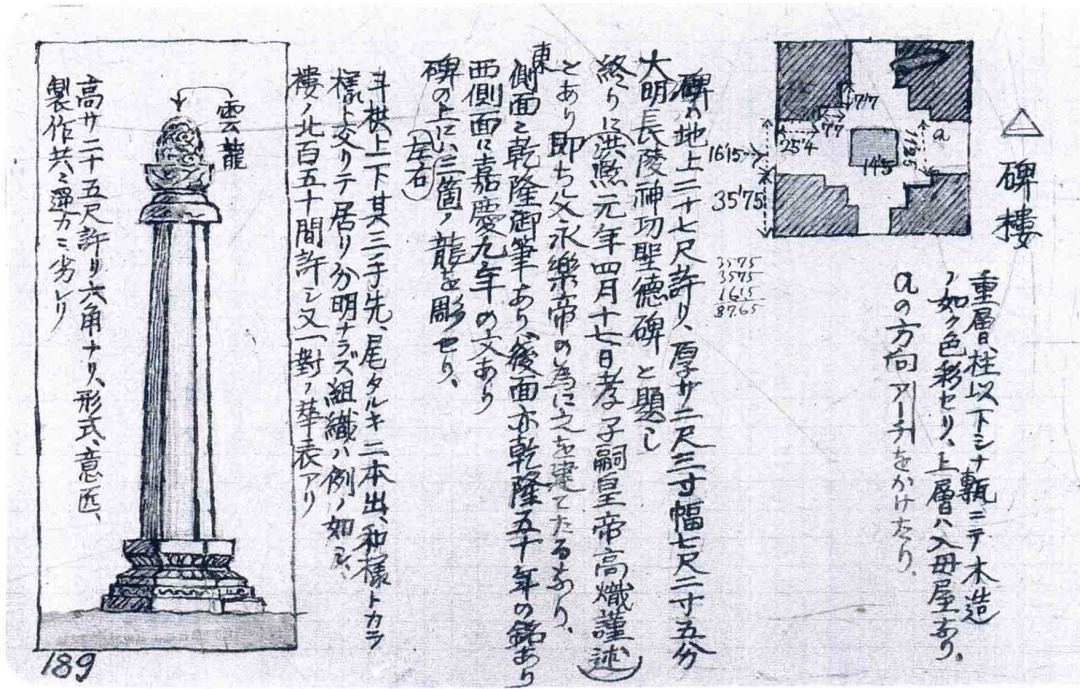 △碑樓
重層日柱以下シナ甎ニテ木造
ノ如ク色彩セリ、上層ハ入母屋あり、
aの方向アーチをかけたり、
77
77
25'4
a
1615
145
1615
35'75
3575
3575
1615
8765
碑ハ地上二十七尺許り、厚サ二尺三寸幅七尺二寸五分
大明長陵神功聖德碑と題し
終りに洪熙元年四月十七日孝子嗣皇帝高熾謹述
とあり即ち父永樂帝の為に之を建てたるあり、
東側面ニ乾隆御筆あり、後面亦乾隆五十年の銘あり
西側面に嘉慶九年の文あり
碑の上にハ三箇ノ龍を彫せり、
斗栱上下其三手先、尾タルキ二本出、和樣トカラ
樣ト交リテ居リ分明ナラズ組織ハ例ノ如シ、
樓ノ北百五十間許ニ又一對ノ華表アリ
雲龍
高サ二十五尺許リ六角ナリ、形式、意匠、
製作共ニ
189